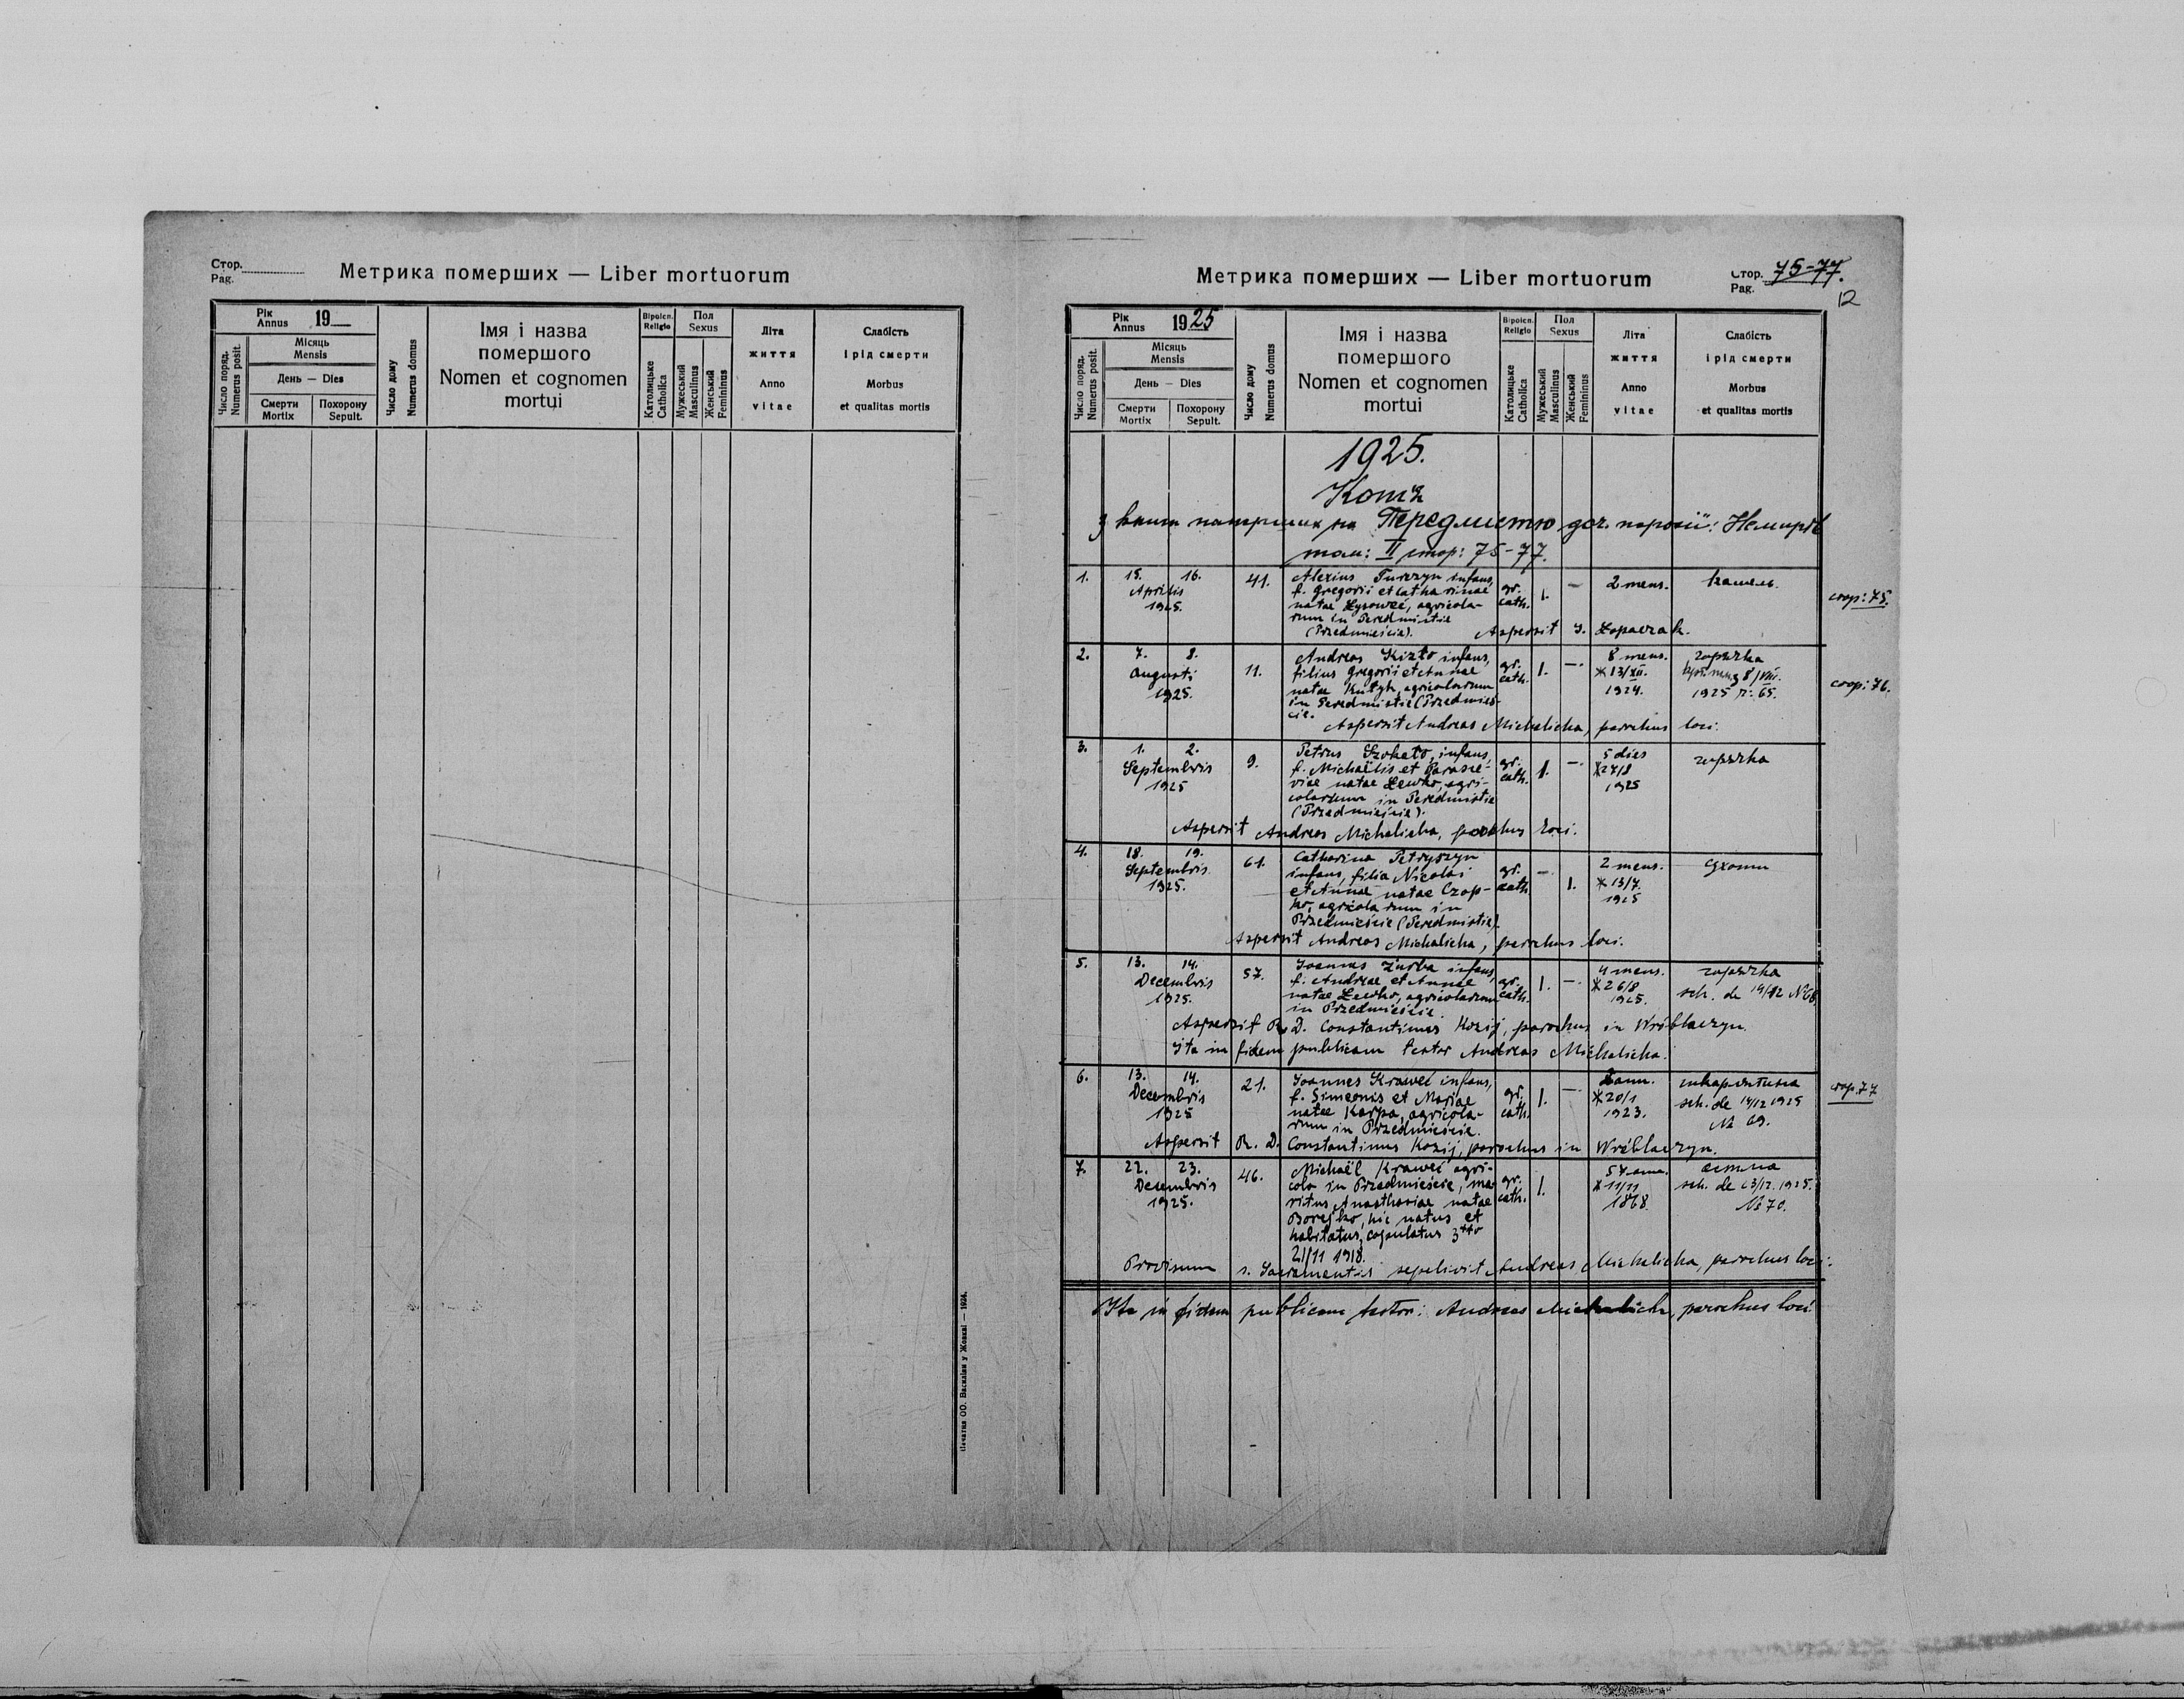 Стор.
Pag.
Метрика померших — Liber mortuorum
Рік
Annus 19
Число поряд.
Numerus posit.
Місяць
Mensis
День — Dies
Смерти
Mortix
Похорону
Sepult.
Число дому
Numerus domus
Імя і назва
помершого
Nomen et cognomen
mortui
Віроісп.
Religio
Католицьке
Catholica
Пол
Sexus
Мужеський
Masculinus
Женський
Femininus
Літа
життя
Anno
vitae
Слабість
і рід смерти
Morbus
et qualitas mortis
Печатня ОО. Василіян у Жовкві — 1924.
Метрика померших — Liber mortuorum
Стор. 75-77.
Pag.
12
Рік
Annus 1925
Число поряд.
Numerus posit.
Місяць
Mensis
День — Dies
Смерти
Mortix
Похорону
Sepult.
Число дому
Numerus domus
Імя і назва
помершого
Nomen et cognomen
mortui
Віроісп.
Religio
Католицьке
Catholica
Пол
Sexus
Мужеський
Masculinus
Женський
Femininus
Літа
життя
Anno
vitae
Слабість
і рід смерти
Morbus
et qualitas mortis
1925.
з книги померших на Передмістю доч. парохії: Немирів
том: II стор: 75-77.
1. 15. 16. 41. Alexius Turczyn infans, gr. 1. — 2 mens. кашель.
Aprilis f. Gregorii et Catharinae cath.
1925. natae Lysowec, agricola-
rum in Peredmistie
(Przedmieście).
стор: 75.
Aspersit J. Lopaczak.
2. 7. 8. 11. Andreas Kizto infans, gr. 1. —. 8 mens. горячка
Augusti filius Gregorii et Annae cath. *13/XII. 8/VIII.
1925. natae Kutyk, agricolarum 1924. 1925 r. 65.
in Peredmistie (Przedmieś-
cie.
стор: 76.
Aspersit Andreas Michalicha, parochus loci.
3. 1. 2. 9. Petrus infans, gr. 1. —. 5 dies горячка
Septembris f. Michaëlis et Parasce- cath. *27/8
1925 viae natae Lewko, agri- 1925
colarum in Peredmistie
(Przedmieście).
Aspersit Andreas Michalicha, parochus loci.
4. 18. 19. 61. Catharina Petryszyn gr. —. 1. 2 mens. сухоти
Septembris infans, filia Nicolai cath. *13/7.
1925. et Annae natae Czop- 1925
ko, agricolarum in
Przedmieście (Peredmistie)
Aspersit Andreas Michalicha, parochus loci.
5. 13. 14. 57. Joannes Zurba infans, gr. 1. —. 4 mens. горячка
Decembris f. Andreae et Annae cath. *26/8 sch. de 14/12 № 68
1925. natae Lewko, agricolarum 1925.
in Przedmieście.
Aspersit R. D. Constantinus Kozij, parochus in Wróblaczyn.
Ita in fidem publicam testor Andreas Michalicha.
6. 13. 14. 21. Joannes Kraweć infans, gr. 1. — 2 ann.
Decembris f. Simeonis et Mariae cath. *20/1 sch. de 14/12 1925
1925 natae Karpa, agricola- 1923. № 69.
rum in Przedmieście.
стор. 77
Aspersit R. D. Constantinus Kozij, parochus in Wróblaczyn.
7. 22. 23. 46. Michaël Kraweć agri- gr. 1. 57 ann.
Decembris cola in Przedmieście, ma- cath. *11/11 sch. de 23/12. 1925.
1925. ritus Anasthasiae natae 1868. № 70.
Borejko, hic natus et
habitatus, copulatus 3tto
21/11 1918.
Provisum s. Sacramentis sepelivit Andreas Michalicha, parochus loci.
Ita in fidem publicam testor: Andreas Michalicha, parochus loci